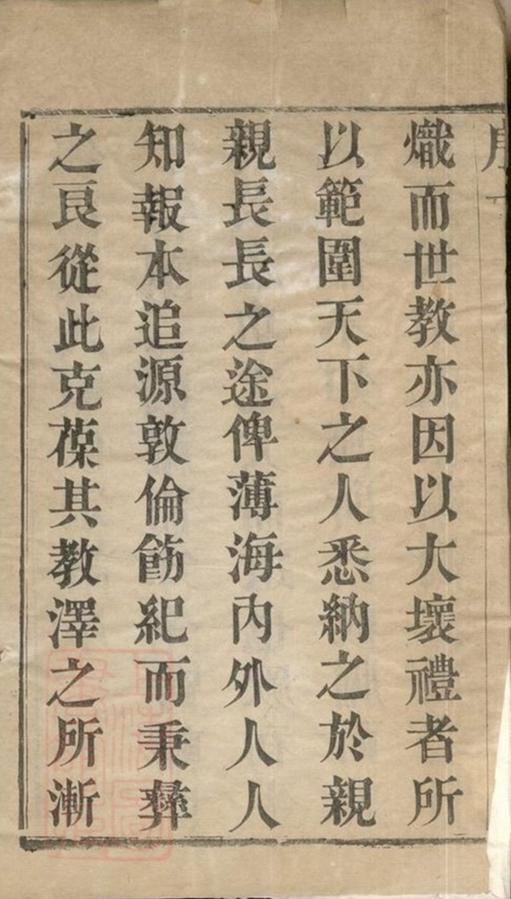 熾而世教亦因以大壞禮者所
以範圍天下之人悉納之於親
親長長之途俾薄海內外人人
知報本追源敦倫飭紀而秉彝
之良從此克葆其教澤之所漸